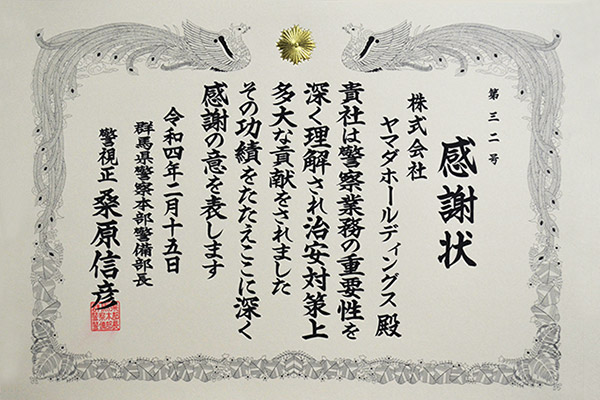 第三二号
感謝状
株式会社
ヤマダホールディングス殿
貴社は警察業務の重要性を
深く理解され治安対策上
多大な貢献をされました
その功績をたたえここに深く
感謝の意を表します
令和四年二月十五日
群馬県警察本部警備部長
警視正 桑原信彦